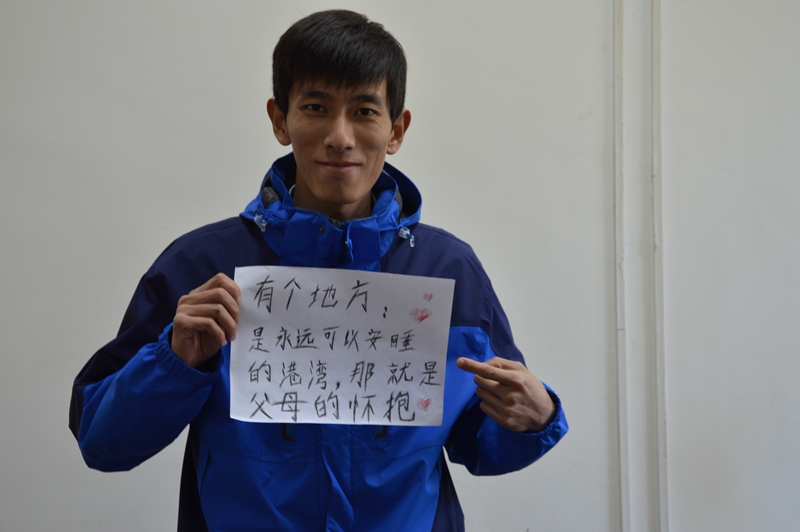 有个地方：
是永远可以安睡
的港湾，那就是
父母的怀抱